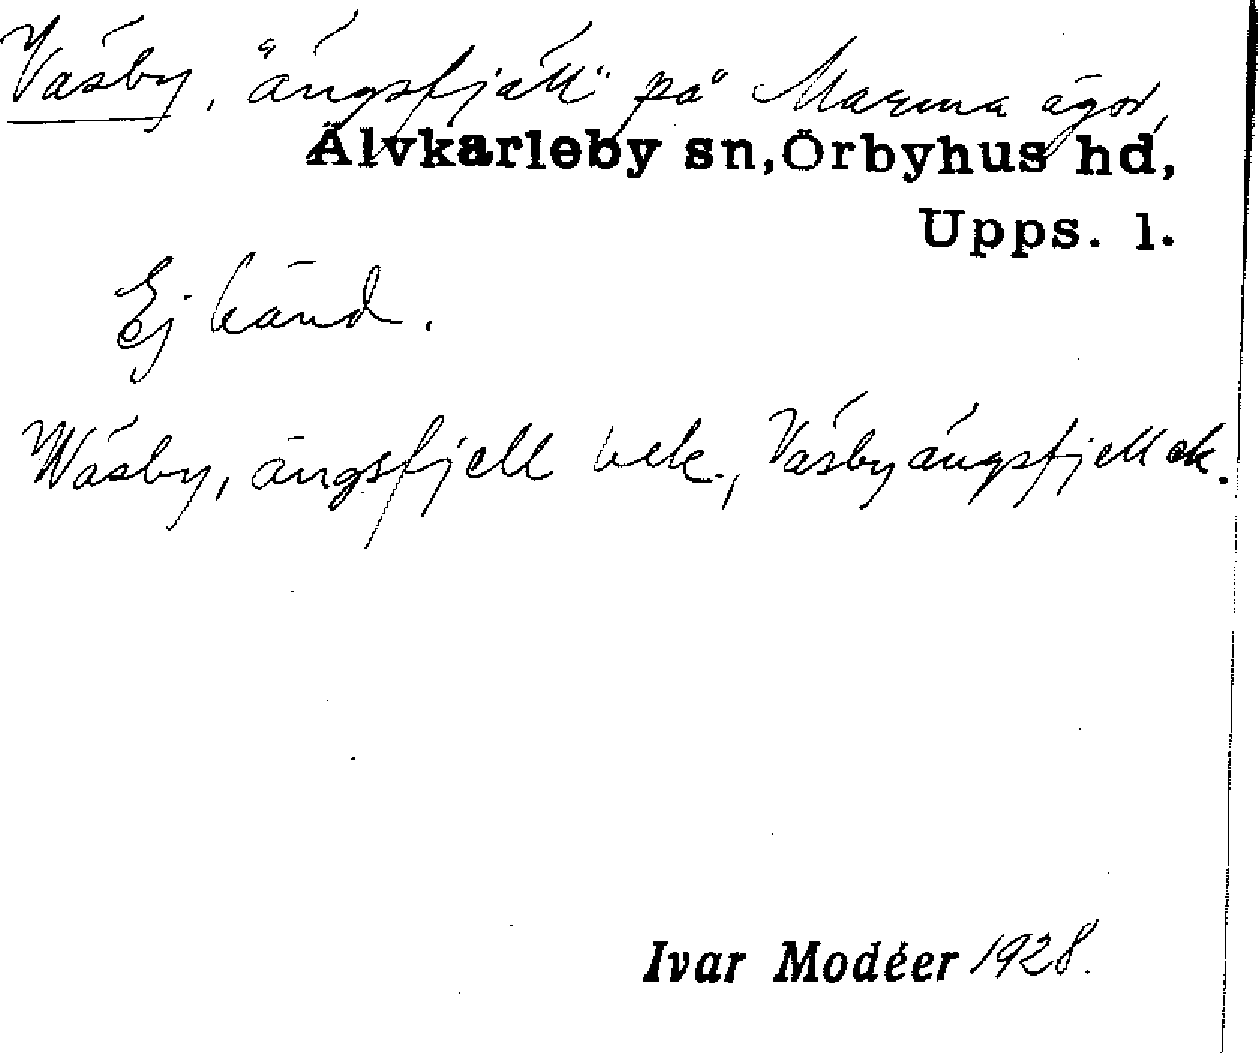 Väsby, "ängsfjäll" på Marma ägor,
Älvkarleby sn, Örbyhus hd,
Upps. l.
Ej känd.
Wäsby, ängsfjell bek., Väsby ängsfjell ek.
Ivar Modéer 1928.